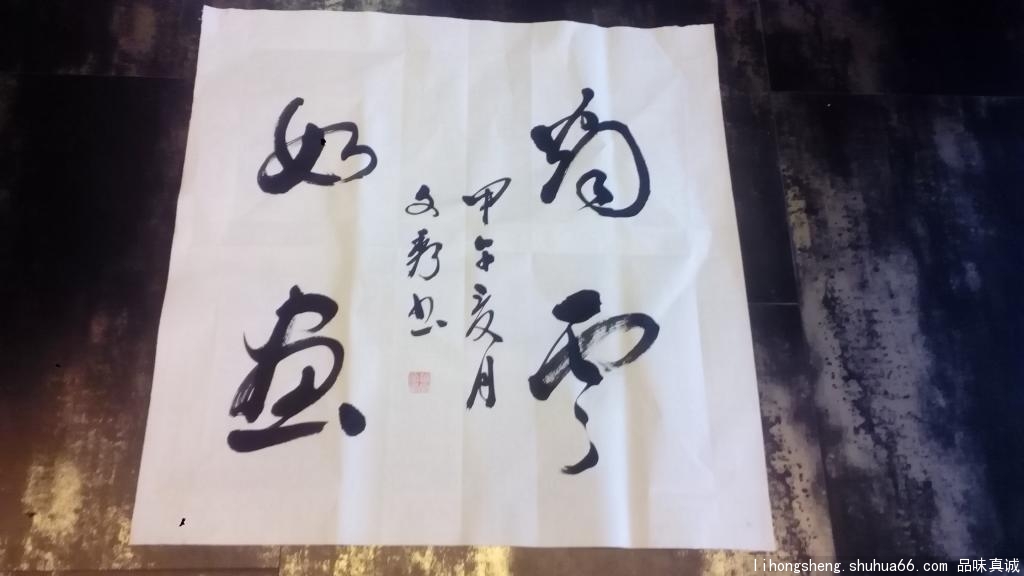 云
如画
甲午夏月
文书
lihongsheng.shuhua66.com 品味真诚